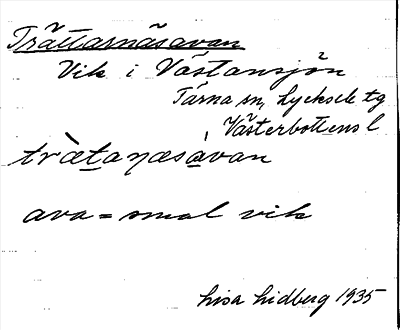 Trättarnäsavan
Vik i Västansjön
Tärna sn, Lycksele tg
Västerbottens l
trὰt̲aṇæsὰ̲van
ava = smal vik
Lisa Lidberg 1935